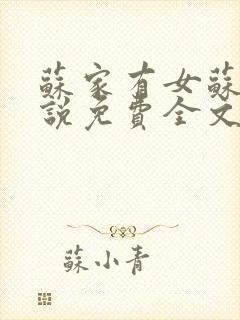 蘇家有女蘇
說免費全文
蘇小青